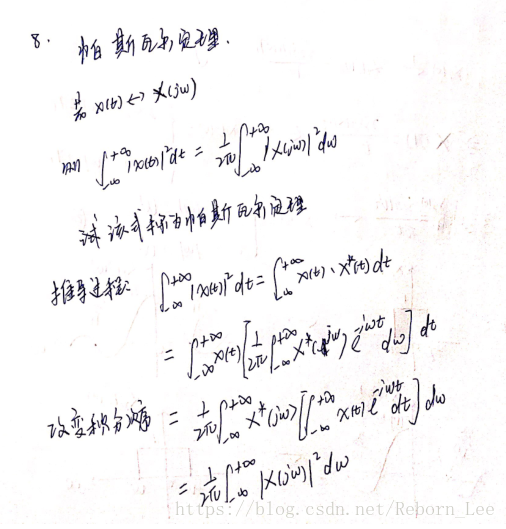 8. 帕斯瓦尔定理.
若 x(t) ↔ X(jω)
则 ∫_{-∞}^{+∞} |x(t)|² dt = \frac{1}{2π} ∫_{-∞}^{+∞} |X(jω)|² dω
该式称为帕斯瓦尔定理
推导过程: ∫_{-∞}^{+∞} |x(t)|² dt = ∫_{-∞}^{+∞} x(t) · x*(t) dt
= ∫_{-∞}^{+∞} x(t) [\frac{1}{2π} ∫_{-∞}^{+∞} X*(jω) e^{-jωt} dω] dt
改变积分次序 = \frac{1}{2π} ∫_{-∞}^{+∞} X*(jω) [∫_{-∞}^{+∞} x(t) e^{-jωt} dt] dω
= \frac{1}{2π} ∫_{-∞}^{+∞} |X(jω)|² dω
https://blog.csdn.net/Reborn_Lee